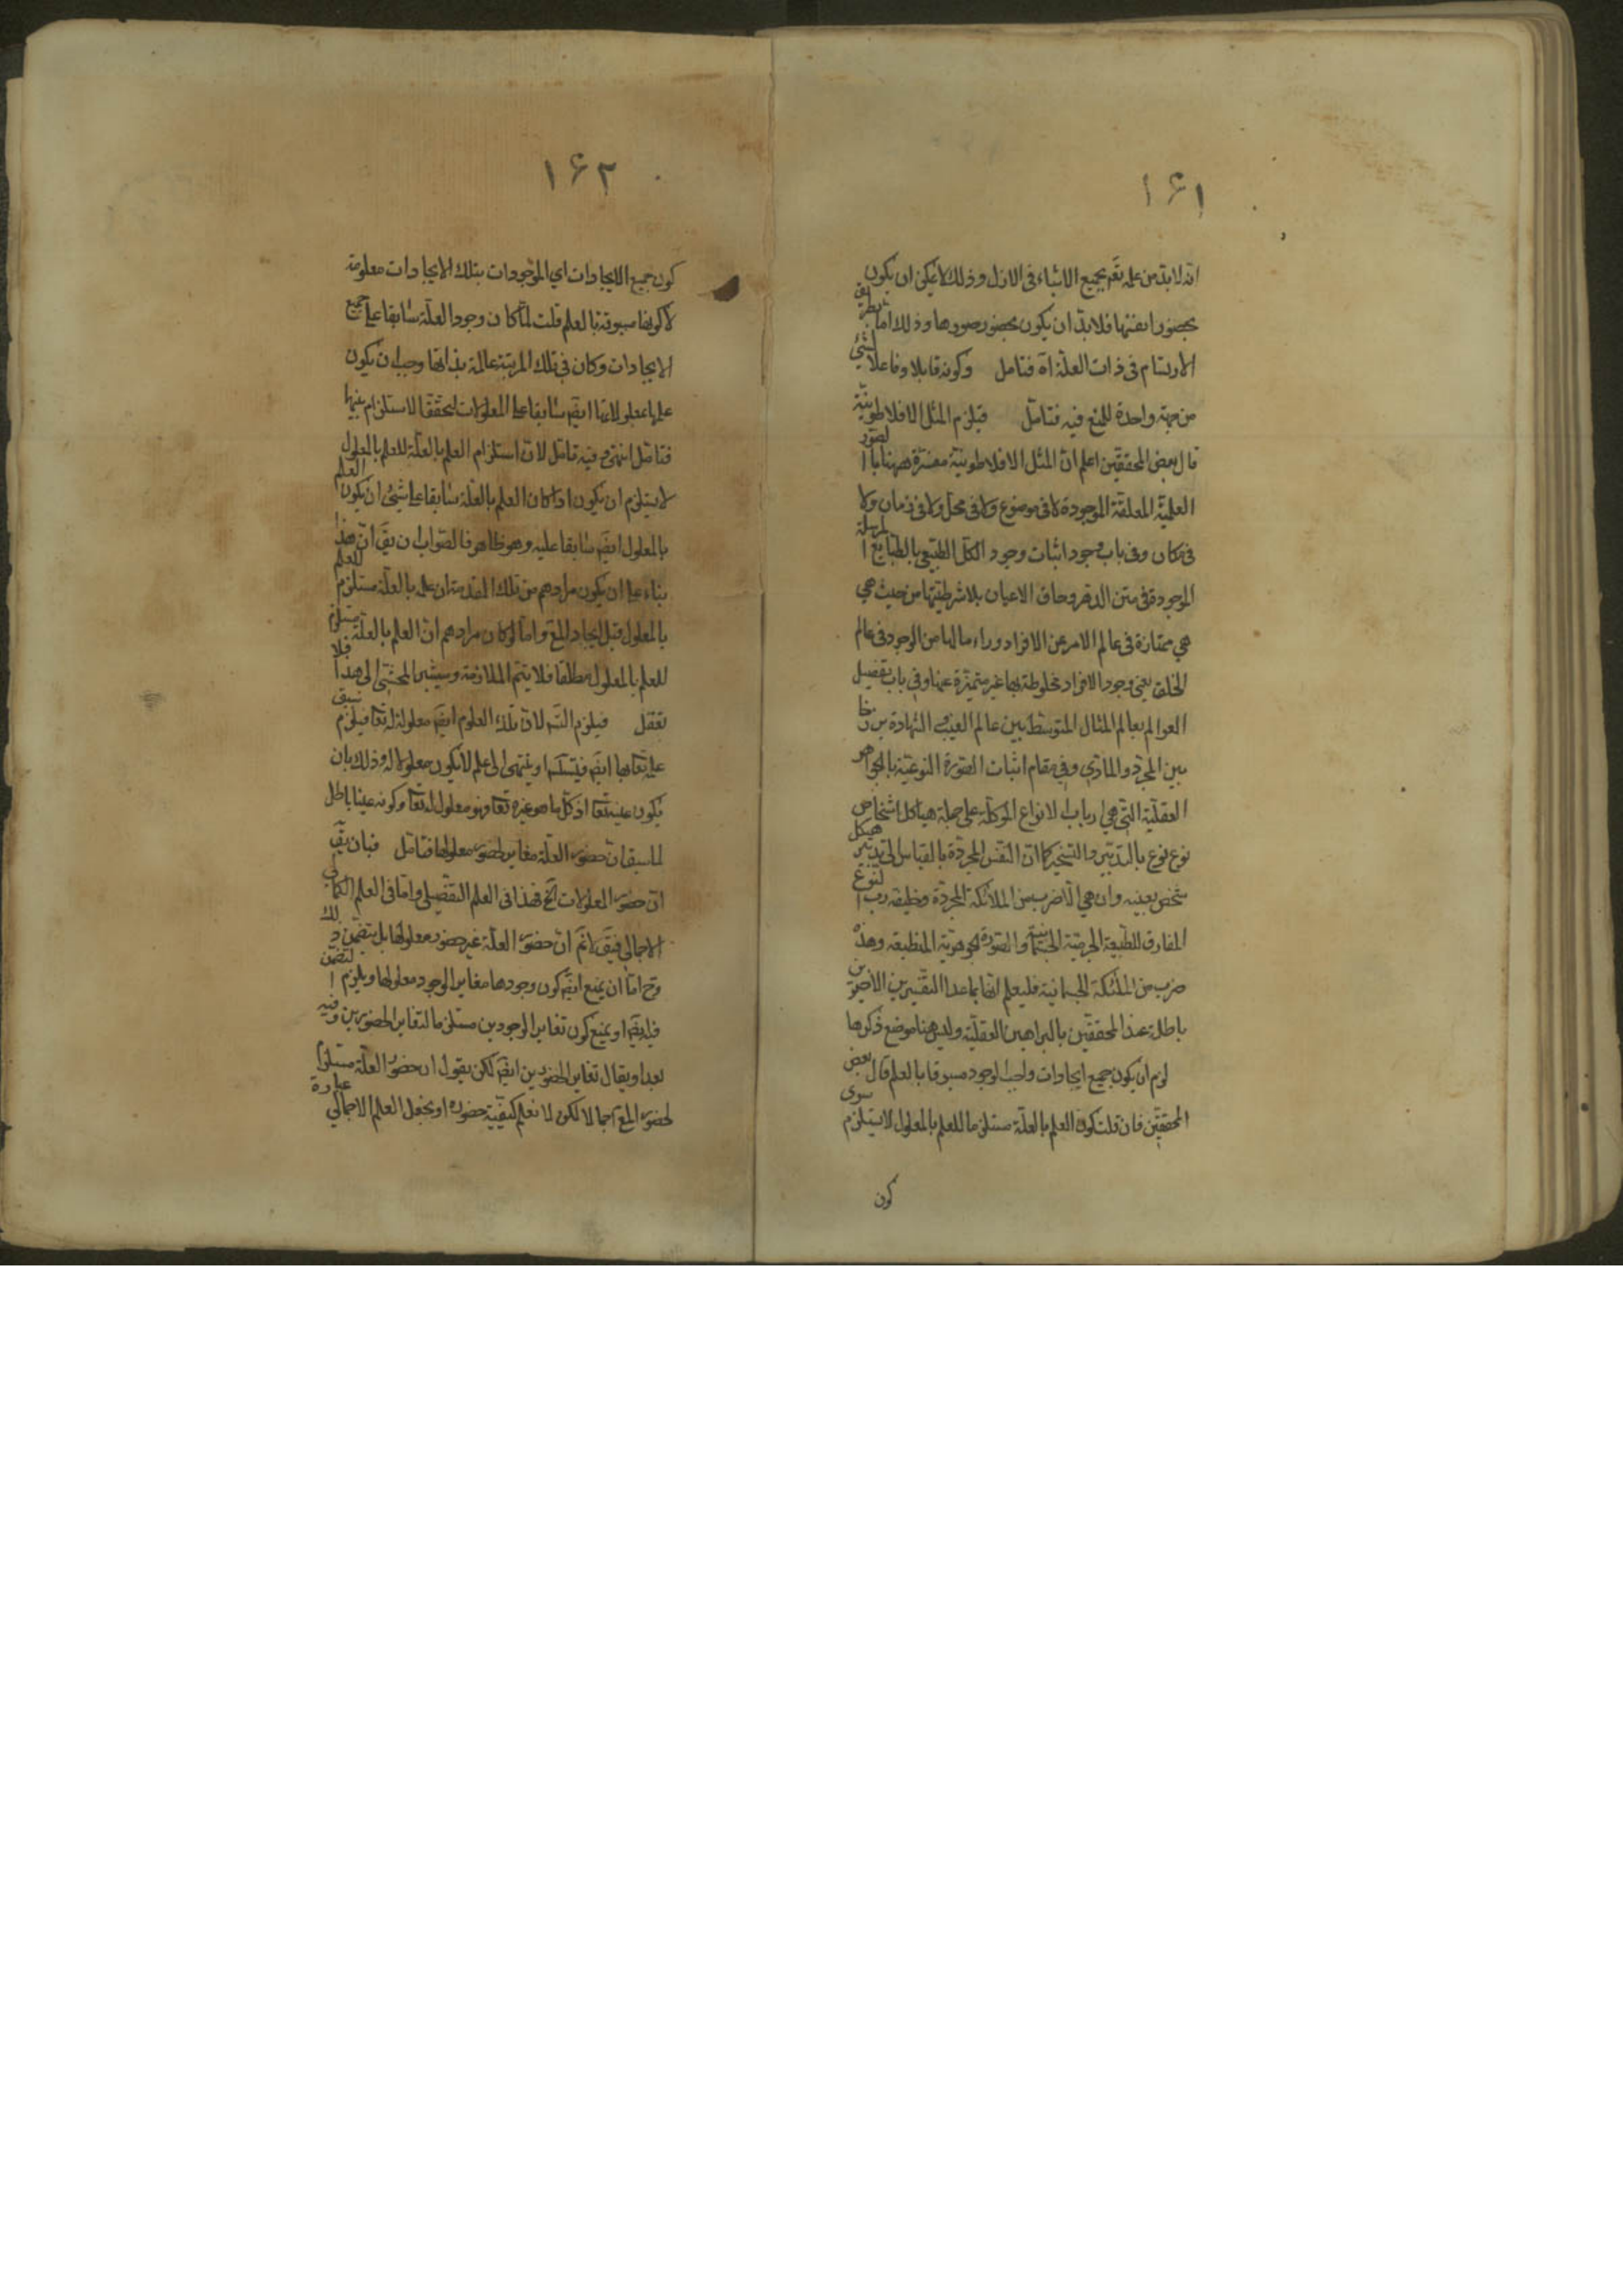 ١۶١
انه لا بد من علمه تعم بجميع الاشياء فى الازل وذلك لا يمكن ان يكون
بحضور انفسها فلا بد ان يكون بحضور صورها وذلك اما بطريق
الارتسام فى ذات العلة اه فتامل وكونه قابلا وفاعلا لشئ
من جهة واحدة للمنع فيه فتامل فيلزم المثل الافلاطونية
قال بعض المحققين اعلم ان المثل الافلاطونية مفسرة ههنا بالصور
العلمية المعلقة الموجودة لا فى موضوع ولا فى محل ولا فى زمان ولا
فى مكان وفى باب وجود اثبات وجود الكل الطبيعى بالطبايع المرسلة
الموجودة فى متن الدهر وحاق الاعيان بلا شرطيتها من حيث هي
هي ممتازة فى عالم الامر عن الافراد وراء مالها من الوجود فى عالم
الخلق يعنى وجود الافراد مخلوطة بها غير متميزة عنها وفى باب تفصيل
العوالم بعالم المثال المتوسط بين عالم الغيب والشهادة برزخا
بين المجرد والمادي وفي مقام اثبات الصورة النوعية بالجواهر
العقلية التي هي ارباب الانواع الموكلة على جملة هياكل اشخاص
نوع نوع بالتدبير والتسخير كما ان النفس المجردة بالقياس الى تدبير هيكل
شخص بعينه وان هي الا ضرب من الملائكة المجردة وظيفته رب النوع
المفارق للطبيعة الجرمية الجسمانية والصورة الجوهرية المنطبعه وهذه
ضرب من الملئكة الجسمانية فليعلم انها بما عدا التفسيرين الاخيرين
باطلة عند المحققين بالبراهين العقلية وليس هنا موضع ذكرها
لزم ان يكون جميع ايجادات واجب الوجود مسبوقا بالعلم قال بعض
المحققين فان قلت كون العلم بالعلة مستلزما للعلم بالمعلول لا يستلزم سوى
كون
١۶٢
كون جميع الايجادات اي الموجودات بتلك الايجادات معلومة
لا كونها مسبوقة بالعلم قلت لما كان وجود العلة سابقا على جميع
الايجادات وكان فى تلك المرتبة عالمة بذاتها وجب ان يكون
علمها بمعلولاتها ايضم سابقا على المعلولات لتحقق الاستلزام بينها
فتامل انتهى وفيه تامل لان استلزام العلم بالعلة للعلم بالمعلول
لا يستلزم ان يكون اذا كان العلم بالعلة سابقا على شئ ان يكون العلم
بالمعلول ايضم سابقا عليه وهو ظاهر فالصواب ان يق ان هذا
بناء على ان يكون مرادهم من تلك المقدمة ان علمه بالعلة مستلزم للعلم
بالمعلول قبل ايجاد المع واما لو كان مرادهم ان العلم بالعلة مستلزم
للعلم بالمعلول مطلقا فلا يتم الملازمة وسيشير المحشى الى هذا فلا
تغفل فيلزم التسم لان تلك العلوم ايضم معلولة له تعا فيلزم سبق
علمه تعا بها ايضم فيتسلسل او ينتهى الى علم لا يكون معلولا له وذلك بان
يكون عينه تعا اذ كل ما هو غيره تعا فهو معلول له تعا وكونه عينا باطل
لما سبق ان حضور العلة مغاير لحضور معلولها فتامل فبان يق
ان حضور المعلولات الخ فهذا فى العلم التفصيلى واما فى العلم الكمالي
الاجمالي فيق لا نم ان حضور العلة غير حضور معلولها بل يتضمن ذلك
وح اما ان يمنع ايضم كون وجودها مغاير الوجود معلولها ويلزم التضمن
فيه ايضم او يمنع كون تغاير الوجودين مستلزما لتغاير الحضورين وفيه
بعد او يقال تغاير الحضورين ايضم لكن يقول ان حضور العلة مستلزم
لحضور المع اجمالا لكن لا نعلم كيفية حضوره او يجعل العلم الاجمالي عبارة